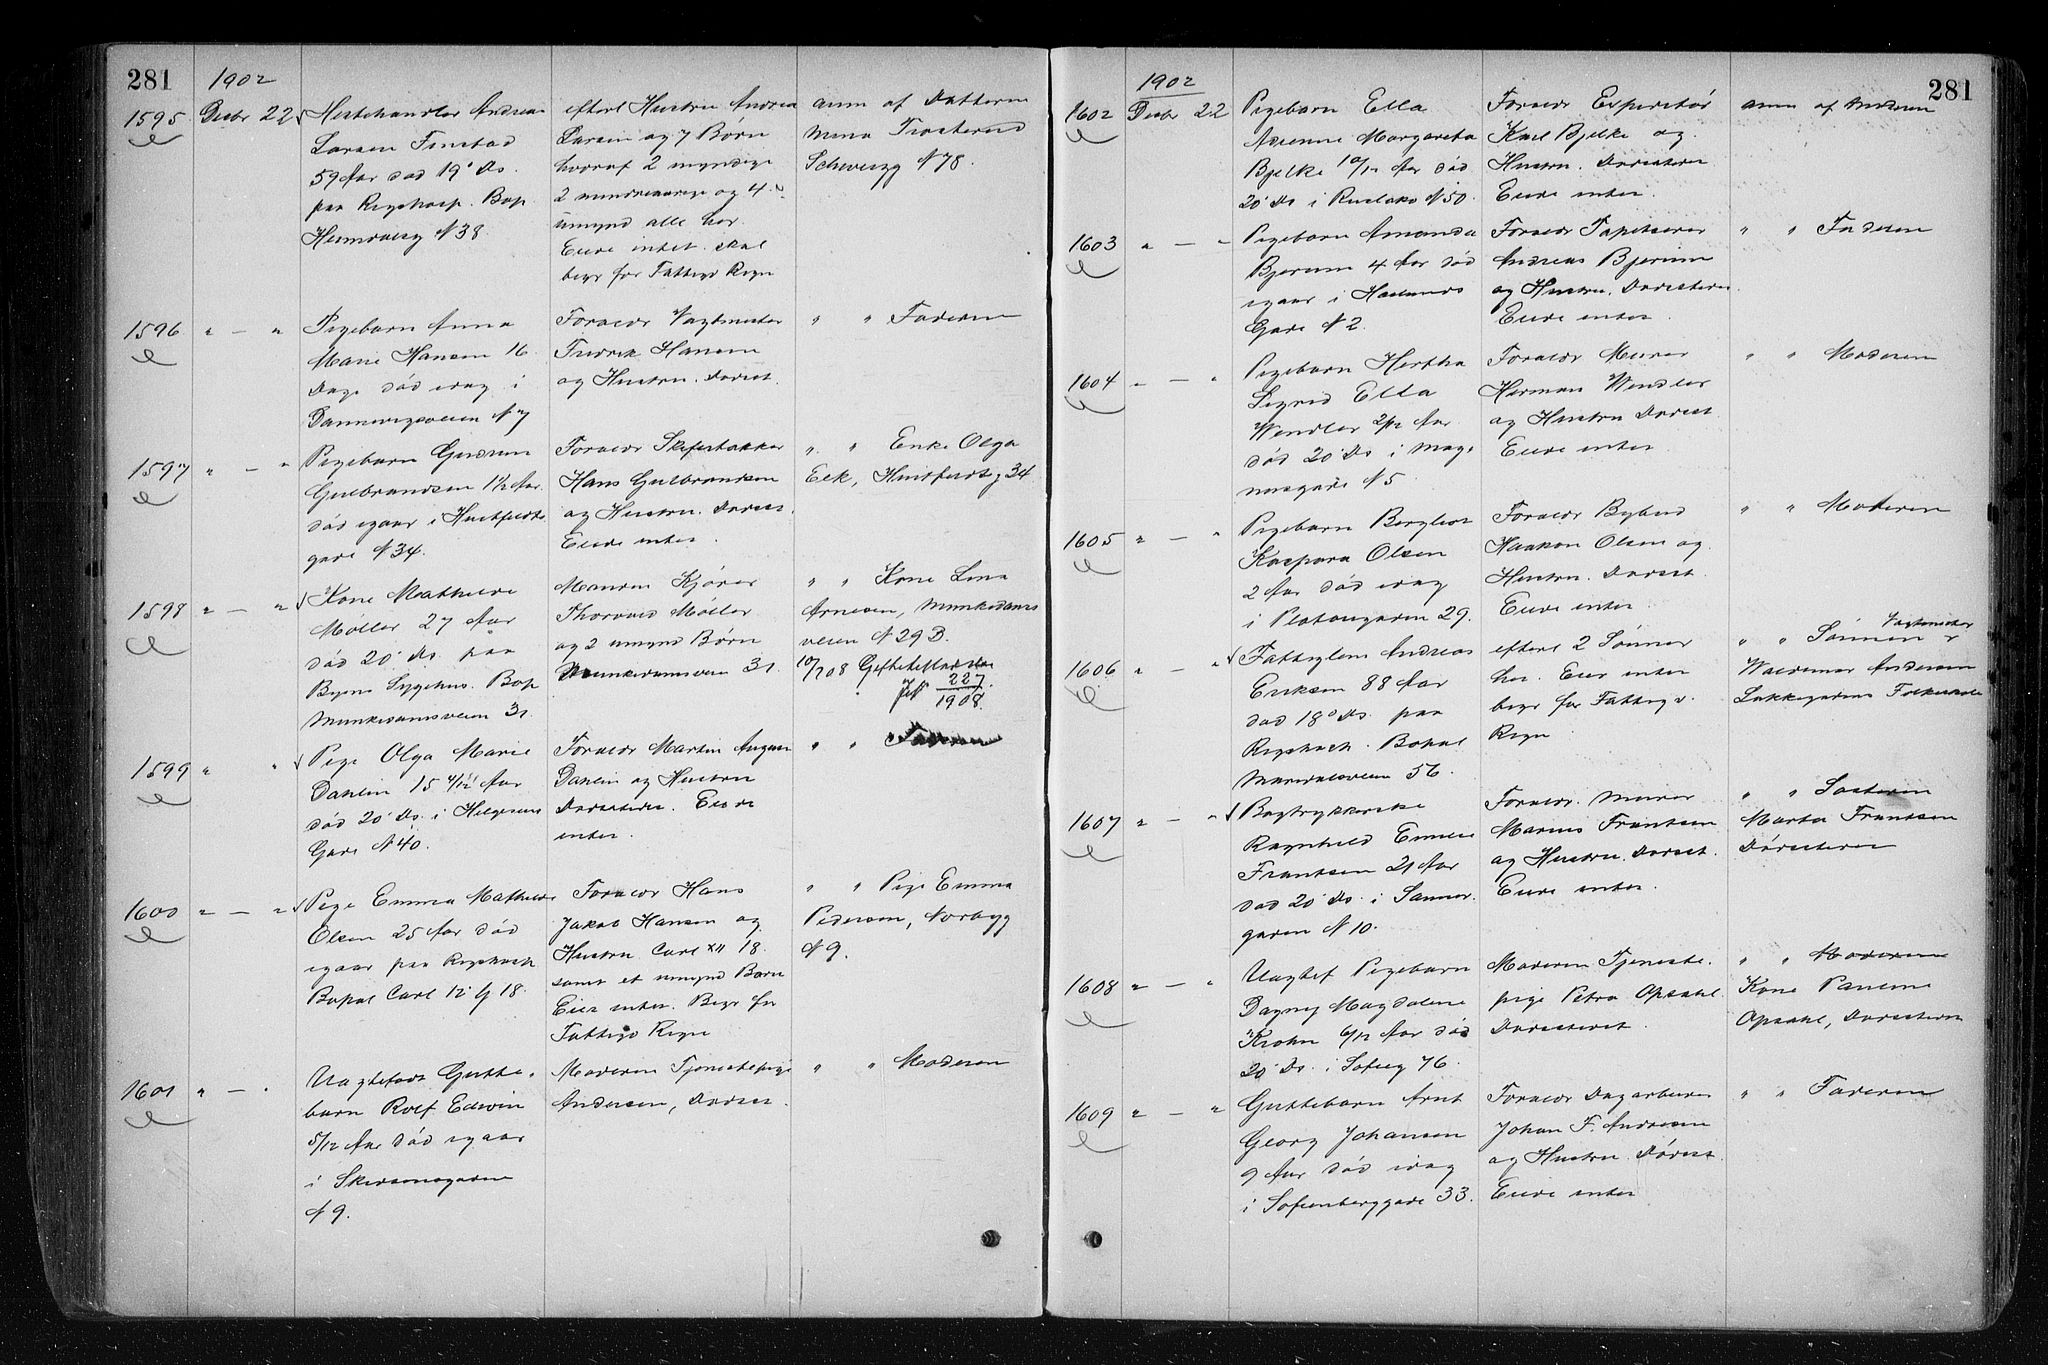 281
1902
1595
Decbr 22
Hestehandler Andreas
Larsen Finstad
59 Aar død 19' Ds.
paa Rigshosp. Bop
N 38
efterl Hustru Andrea
Larsen og 7 Børn
hvoraf 2 myndige
2 mindreaarige og 4
umynd alle her.
Eiede intet skal
begr for Fattigv Regn
anm af Datteren
Schweizg N 78.
1596 " — "
Pigebarn Anna
Marie Hansen 16
Dage død idag i
Dannevigsveien N 7
Foreldr Vagtmester
Fredrik Hansen
og Hustru. Dødset.
" " Faderen
1597 " — "
Pigebarn Gudrun
Gulbrandsen 1 1/2 Aar
død igaar i Huitfeldts
gade N 34.
Foreldr
Hans Gulbrandsen
og Hustru. Dødset.
Eiede intet.
" " Enke Olga
Eek, Huitfeldtsg 34
1598 " — "
Kone Mathilde
Møller 27 Aar
død 20' Ds. paa
Byens Sygehus. Bop
Munkedamsveien 31
Manden Kjører
Thorvald Møller
og 2 umynd Børn
Munkedamsveien 31
" " Kone Lina
Arnesen, Munkedams
veien N 29 B.
10/7 08
227
1908.
1599 " "
Pige Olga Marie
Dahlin 15 4/12 Aar
død 20' Ds. i Helgesens
Gade N 40.
Foreldr Martin August
Dahlin og Hustru
Dødsstedet. Eiede
intet.
" "
1600 " — "
Pige Emma Mathilde
Olsen 25 Aar død
igaar paa Rigshosp
Bopæl Carl 12' G 18.
Foreldr Hans
Jakob Hansen og
Hustru Carl XII 18.
samt et umynd Barn
Eier intet. Begr for
Fattigv Regn
" " Pige Emma
Pedersen, Norbyg
N 9.
1601 " — "
Uægtefødt Gutte
barn Rolf Edwin
5/12 Aar død igaar
i
N 9.
Moderen Tjenestepige
Andersen, Dødset.
" " Moderen
281
1902
1602 Decbr 22
Pigebarn Ella
Margaretha
Bjelke 10/12 Aar død
20' Ds i Ruseløkv N 50.
Foreldr Expeditør
Karl Bjelke og
Hustru. Dødsstedet
Eiede intet.
anm af Moderen
1603 " — "
Pigebarn Amanda
Bjerum 4 Aar død
igaar i
Gade N 2.
Foreldr Tapetserer
Andreas Bjerum
og Hustru. Dødsstedet.
Eiede intet.
" " Faderen
1604 " — "
Pigebarn Hertha
Sigrid Ella
Wendler 2/12 Aar
død 20' Ds i Mag
nusgade N 5
Foreldr Murer
Herman Wendler
og Hustru Dødset.
Eiede intet
" " Moderen
1605 " — "
Pigebarn Bergliot
Kaspara Olsen
2 Aar død idag
i Platougaden 29.
Foreldr Bybud
Haakon Olsen og
Hustru. Dødset.
Eiede intet.
" " Moderen
1606 " — "
Fattiglem Andreas
Eriksen 88 Aar
død 18' Ds. paa
Rigshosp. Bopæl
Maridalsveien 56.
efterl 2 Sønner
her. Eier intet
begr for Fattigv.
Regn
" " Sønnen Vagtmester
Waldemar Andersen
Lakkegadens Folkeskole
1607 " — "
Bogtrykkerske
Ragnhild Emilie
Frantsen 21 Aar
død 20' Ds. i Sanner
gaden N 10.
Foreldr. Murer
Marius Frantsen
og Hustru. Dødset.
Eiede intet.
" " Søsteren
Marta Frantsen
Dødsstedet
1608 " — "
Uægtef Pigebarn
Dagny Magdalene
Krohn 6/12 Aar død
20' Ds. i Sofieg 76.
Moderen Tjeneste
pige Petra Opsahl.
Dødsstedet.
" " Moderen
Kone Pauline
Opsahl, Dødsstedet
1609 " — "
Guttebarn Arnt
Georg Johansen
9 Aar død idag
i Sofienberggade 33.
Foreldr Dagarbeider
Johan F. Andresen
og Hustru. Dødset.
Eiede intet
" " Faderen